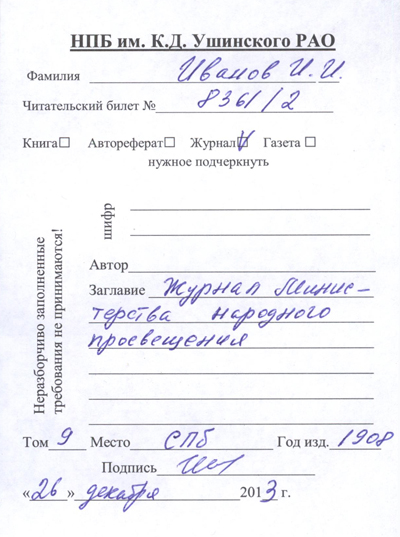 НПБ им. К.Д. Ушинского РАО
Фамилия Иванов И.И.
Читательский билет № 8361/2
Книга☐ Автореферат☐ Журнал☑ Газета ☐
нужное подчеркнуть
Неразборчиво заполненные
требования не принимаются!
шифр
Автор
Заглавие Журнал Минис-
терства народного
просвещения
Том 9 Место СПб Год изд. 1908
Подпись
«26» декабря 2013 г.